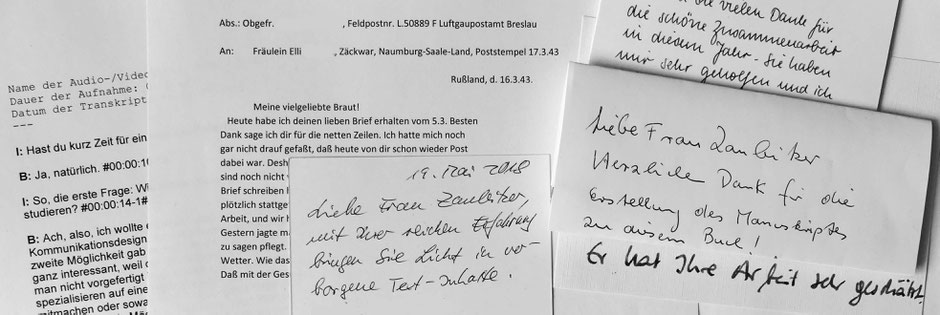 Name der Audio-/Video
Dauer der Aufnahme:
Datum der Transkript
---
I: Hast du kurz Zeit für ein
B: Ja, natürlich. #00:00:10
I: So, die erste Frage: W
studieren? #00:00:14-1#
B: Ach, also, ich wollte
Kommunikationsdesign
zweite Möglichkeit gab
ganz interessant, weil
man nicht vorgefertigt
spezialisieren auf eine
mitmachen oder sowa
Abs.: Obgefr. , Feldpostnr. L.50889 F Luftgaupostamt Breslau
An: Fräulein Elli , Zäckwar, Naumburg-Saale-Land, Poststempel 17.3.43
Rußland, d. 16.3.43.
Meine vielgeliebte Braut!
Heute habe ich deinen lieben Brief erhalten vom 5.3. Besten
Dank sage ich dir für die netten Zeilen. Ich hatte mich noch
gar nicht drauf gefaßt, daß heute von dir schon wieder Post
dabei war. Desh
sind noch nicht v
Brief schreiben
plötzlich stattge
Arbeit, und wir h
Gestern jagte m
zu sagen pflegt.
Wetter. Wie das
Daß mit der Ges
19. Mai 2018
Liebe Frau Zaubitzer,
mit Ihrer reichen Erfahrung
bringen Sie Licht in ver-
borgene Text-Inhalte.
die vielen Dank für
die schöne Zusammenarbeit
in diesem Jahr - Sie haben
mir sehr geholfen und ich
Liebe Frau Zaubitzer
Herzlichen Dank für die
Erstellung des Manuskriptes
zu diesem Buch!
Er hat Ihre Arbeit sehr geschätzt.